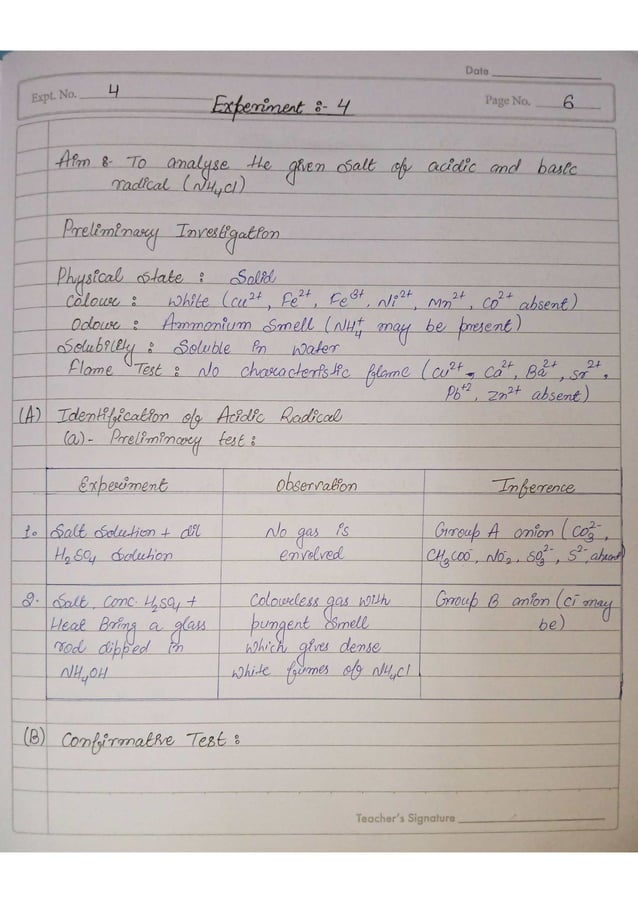 Date
Expt. No. 4
Experiment :- 4
Page No. 6
Aim :- To analyse the given salt of acidic and basic
radical (NH₄Cl)
Preliminary Investigation
Physical state : Solid
Colour : White (Cu²⁺, Fe²⁺, Fe³⁺, Ni²⁺, Mn²⁺, CO²⁺ absent)
Odour : Ammonium smell (NH₄⁺ may be present)
Solubility : Soluble in water
Flame Test : No characteristic flame (Cu²⁺, Ca²⁺, Ba²⁺, Sr²⁺,
Pb⁺², Zn²⁺ absent)
(A) Identification of Acidic Radical
(a)- Preliminary test :
Experiment Observation Inference
1. Salt solution + dil No gas is Group A anion (CO₃²⁻,
H₂SO₄ solution envolved CH₃COO⁻, NO₂⁻, SO₃²⁻, S²⁻, absent)
2. Salt, Conc. H₂SO₄ + Colourless gas with Group B anion (Cl⁻ may
Heat Bring a glass pungent smell be)
rod dipped in which gives dense
NH₄OH white fumes of NH₄Cl
(B) Confirmative Test :
Teacher's Signature